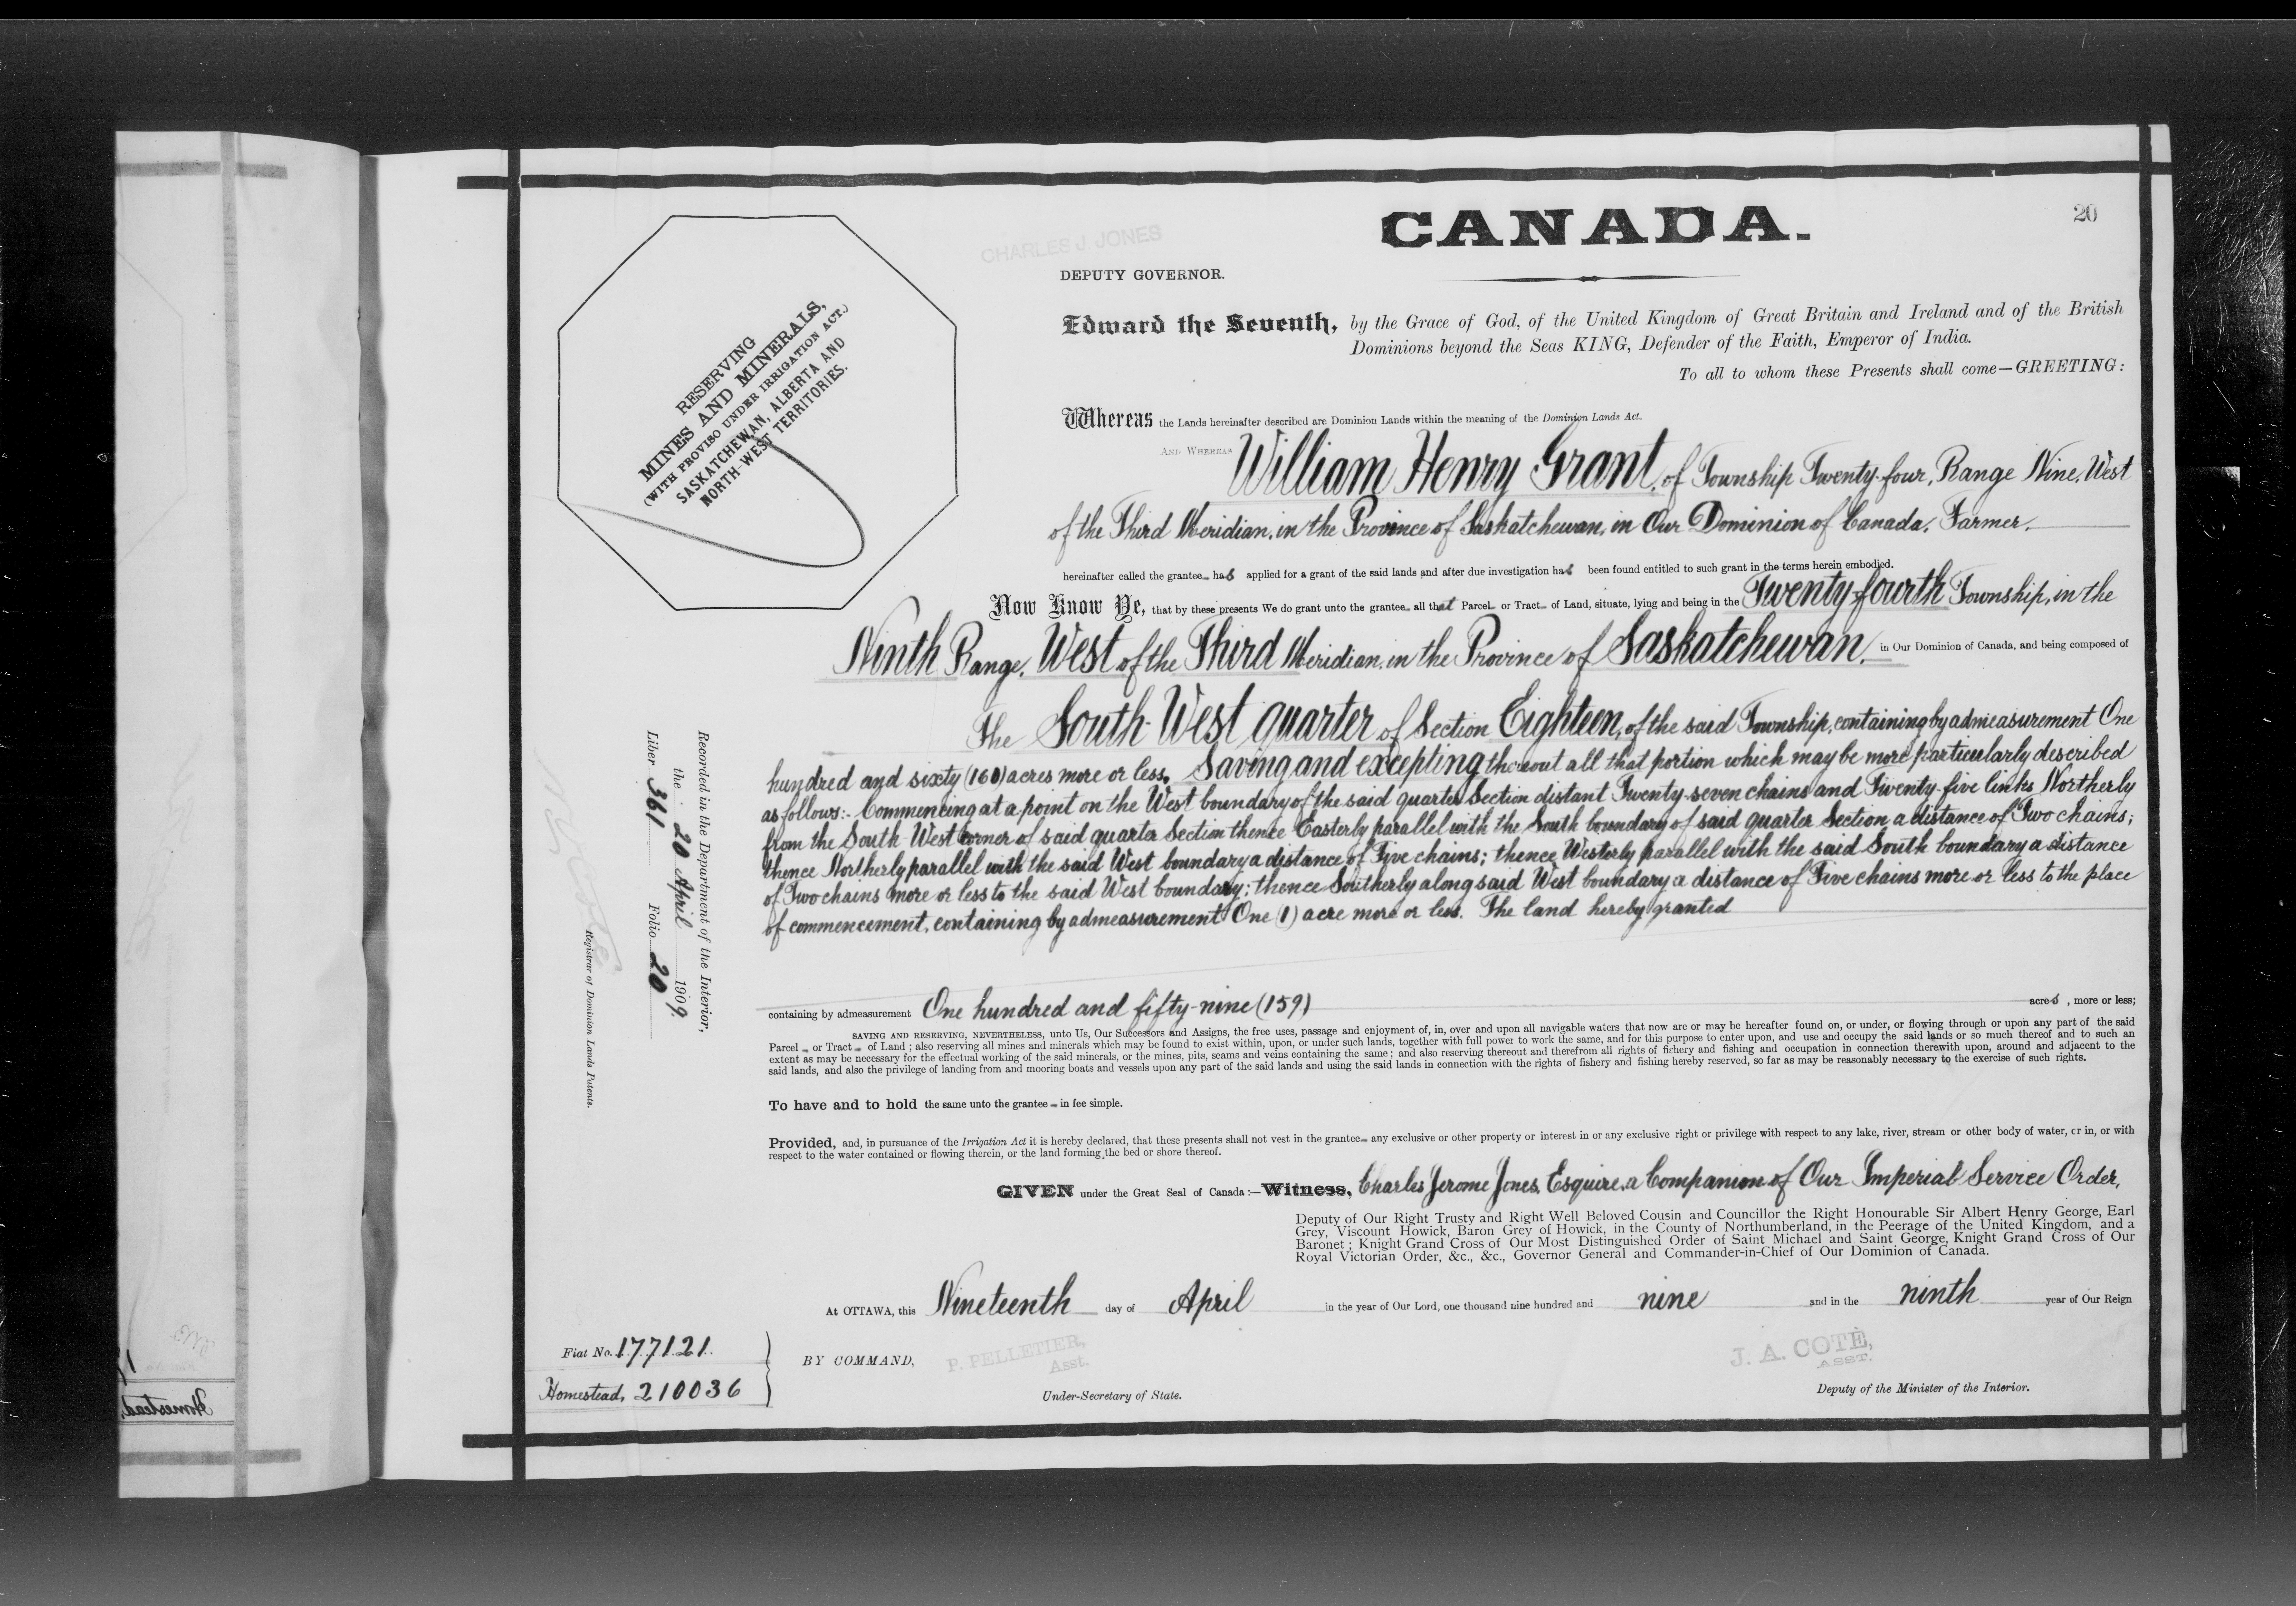 CANADA.
20
CHARLES J. JONES
DEPUTY GOVERNOR.
RESERVING
MINES AND MINERALS,
(WITH PROVISO UNDER IRRIGATION ACT.)
SASKATCHEWAN, ALBERTA AND
NORTH-WEST TERRITORIES.
Edward the Seventh, by the Grace of God, of the United Kingdom of Great Britain and Ireland and of the British
Dominions beyond the Seas KING, Defender of the Faith, Emperor of India.
To all to whom these Presents shall come—GREETING:
Whereas the Lands hereinafter described are Dominion Lands within the meaning of the Dominion Lands Act.
AND WHEREAS William Henry Grant, of Township Twenty-four, Range Nine, West
of the Third Meridian, in the Province of Saskatchewan, in Our Dominion of Canada, Farmer,
hereinafter called the grantee has applied for a grant of the said lands and after due investigation has been found entitled to such grant in the terms herein embodied.
Now Know Ye, that by these presents We do grant unto the grantee all that Parcel or Tract of Land, situate, lying and being in the Twenty-fourth Township, in the
Ninth Range, West of the Third Meridian, in the Province of Saskatchewan, in Our Dominion of Canada, and being composed of
The South-West quarter of Section Eighteen, of the said Township, containing by admeasurement One
hundred and sixty (160) acres more or less. Saving and excepting thereout all that portion which may be more particularly described
as follows:- Commencing at a point on the West boundary of the said quarter Section distant Twenty-seven chains and Twenty-five links Northerly
from the South-West corner of said quarter Section thence Easterly parallel with the South boundary of said quarter Section a distance of Two chains;
thence Northerly parallel with the said West boundary a distance of Five chains; thence Westerly parallel with the said South boundary a distance
of Two chains more or less to the said West boundary; thence Southerly along said West boundary a distance of Five chains more or less to the place
of commencement, containing by admeasurement One (1) acre more or less. The land hereby granted
containing by admeasurement One hundred and fifty-nine (159) acres, more or less;
SAVING AND RESERVING, NEVERTHELESS, unto Us, Our Successors and Assigns, the free uses, passage and enjoyment of, in, over and upon all navigable waters that now are or may be hereafter found on, or under, or flowing through or upon any part of the said
Parcel or Tract of Land; also reserving all mines and minerals which may be found to exist within, upon, or under such lands, together with full power to work the same, and for this purpose to enter upon, and use and occupy the said lands or so much thereof and to such an
extent as may be necessary for the effectual working of the said minerals, or the mines, pits, seams and veins containing the same; and also reserving thereout and therefrom all rights of fishery and fishing and occupation in connection therewith upon, around and adjacent to the
said lands, and also the privilege of landing from and mooring boats and vessels upon any part of the said lands and using the said lands in connection with the rights of fishery and fishing hereby reserved, so far as may be reasonably necessary to the exercise of such rights.
To have and to hold the same unto the grantee in fee simple.
Provided, and, in pursuance of the Irrigation Act it is hereby declared, that these presents shall not vest in the grantee any exclusive or other property or interest in or any exclusive right or privilege with respect to any lake, river, stream or other body of water, or in, or with
respect to the water contained or flowing therein, or the land forming the bed or shore thereof.
GIVEN under the Great Seal of Canada:—Witness, Charles Jerome Jones, Esquire, a Companion of Our Imperial Service Order,
Deputy of Our Right Trusty and Right Well Beloved Cousin and Councillor the Right Honourable Sir Albert Henry George, Earl
Grey, Viscount Howick, Baron Grey of Howick, in the County of Northumberland, in the Peerage of the United Kingdom, and a
Baronet; Knight Grand Cross of Our Most Distinguished Order of Saint Michael and Saint George, Knight Grand Cross of Our
Royal Victorian Order, &c., &c., Governor General and Commander-in-Chief of Our Dominion of Canada.
At OTTAWA, this Nineteenth day of April in the year of Our Lord, one thousand nine hundred and nine and in the ninth year of Our Reign
BY COMMAND,
P. PELLETIER,
Asst.
Under-Secretary of State.
J. A. COTÉ,
ASST.
Deputy of the Minister of the Interior.
Fiat No. 177121.
Homestead, 210036
Recorded in the Department of the Interior,
the 20 April 1909.
Liber 361 Folio 20
Registrar of Dominion Lands Patents.
Homestead,